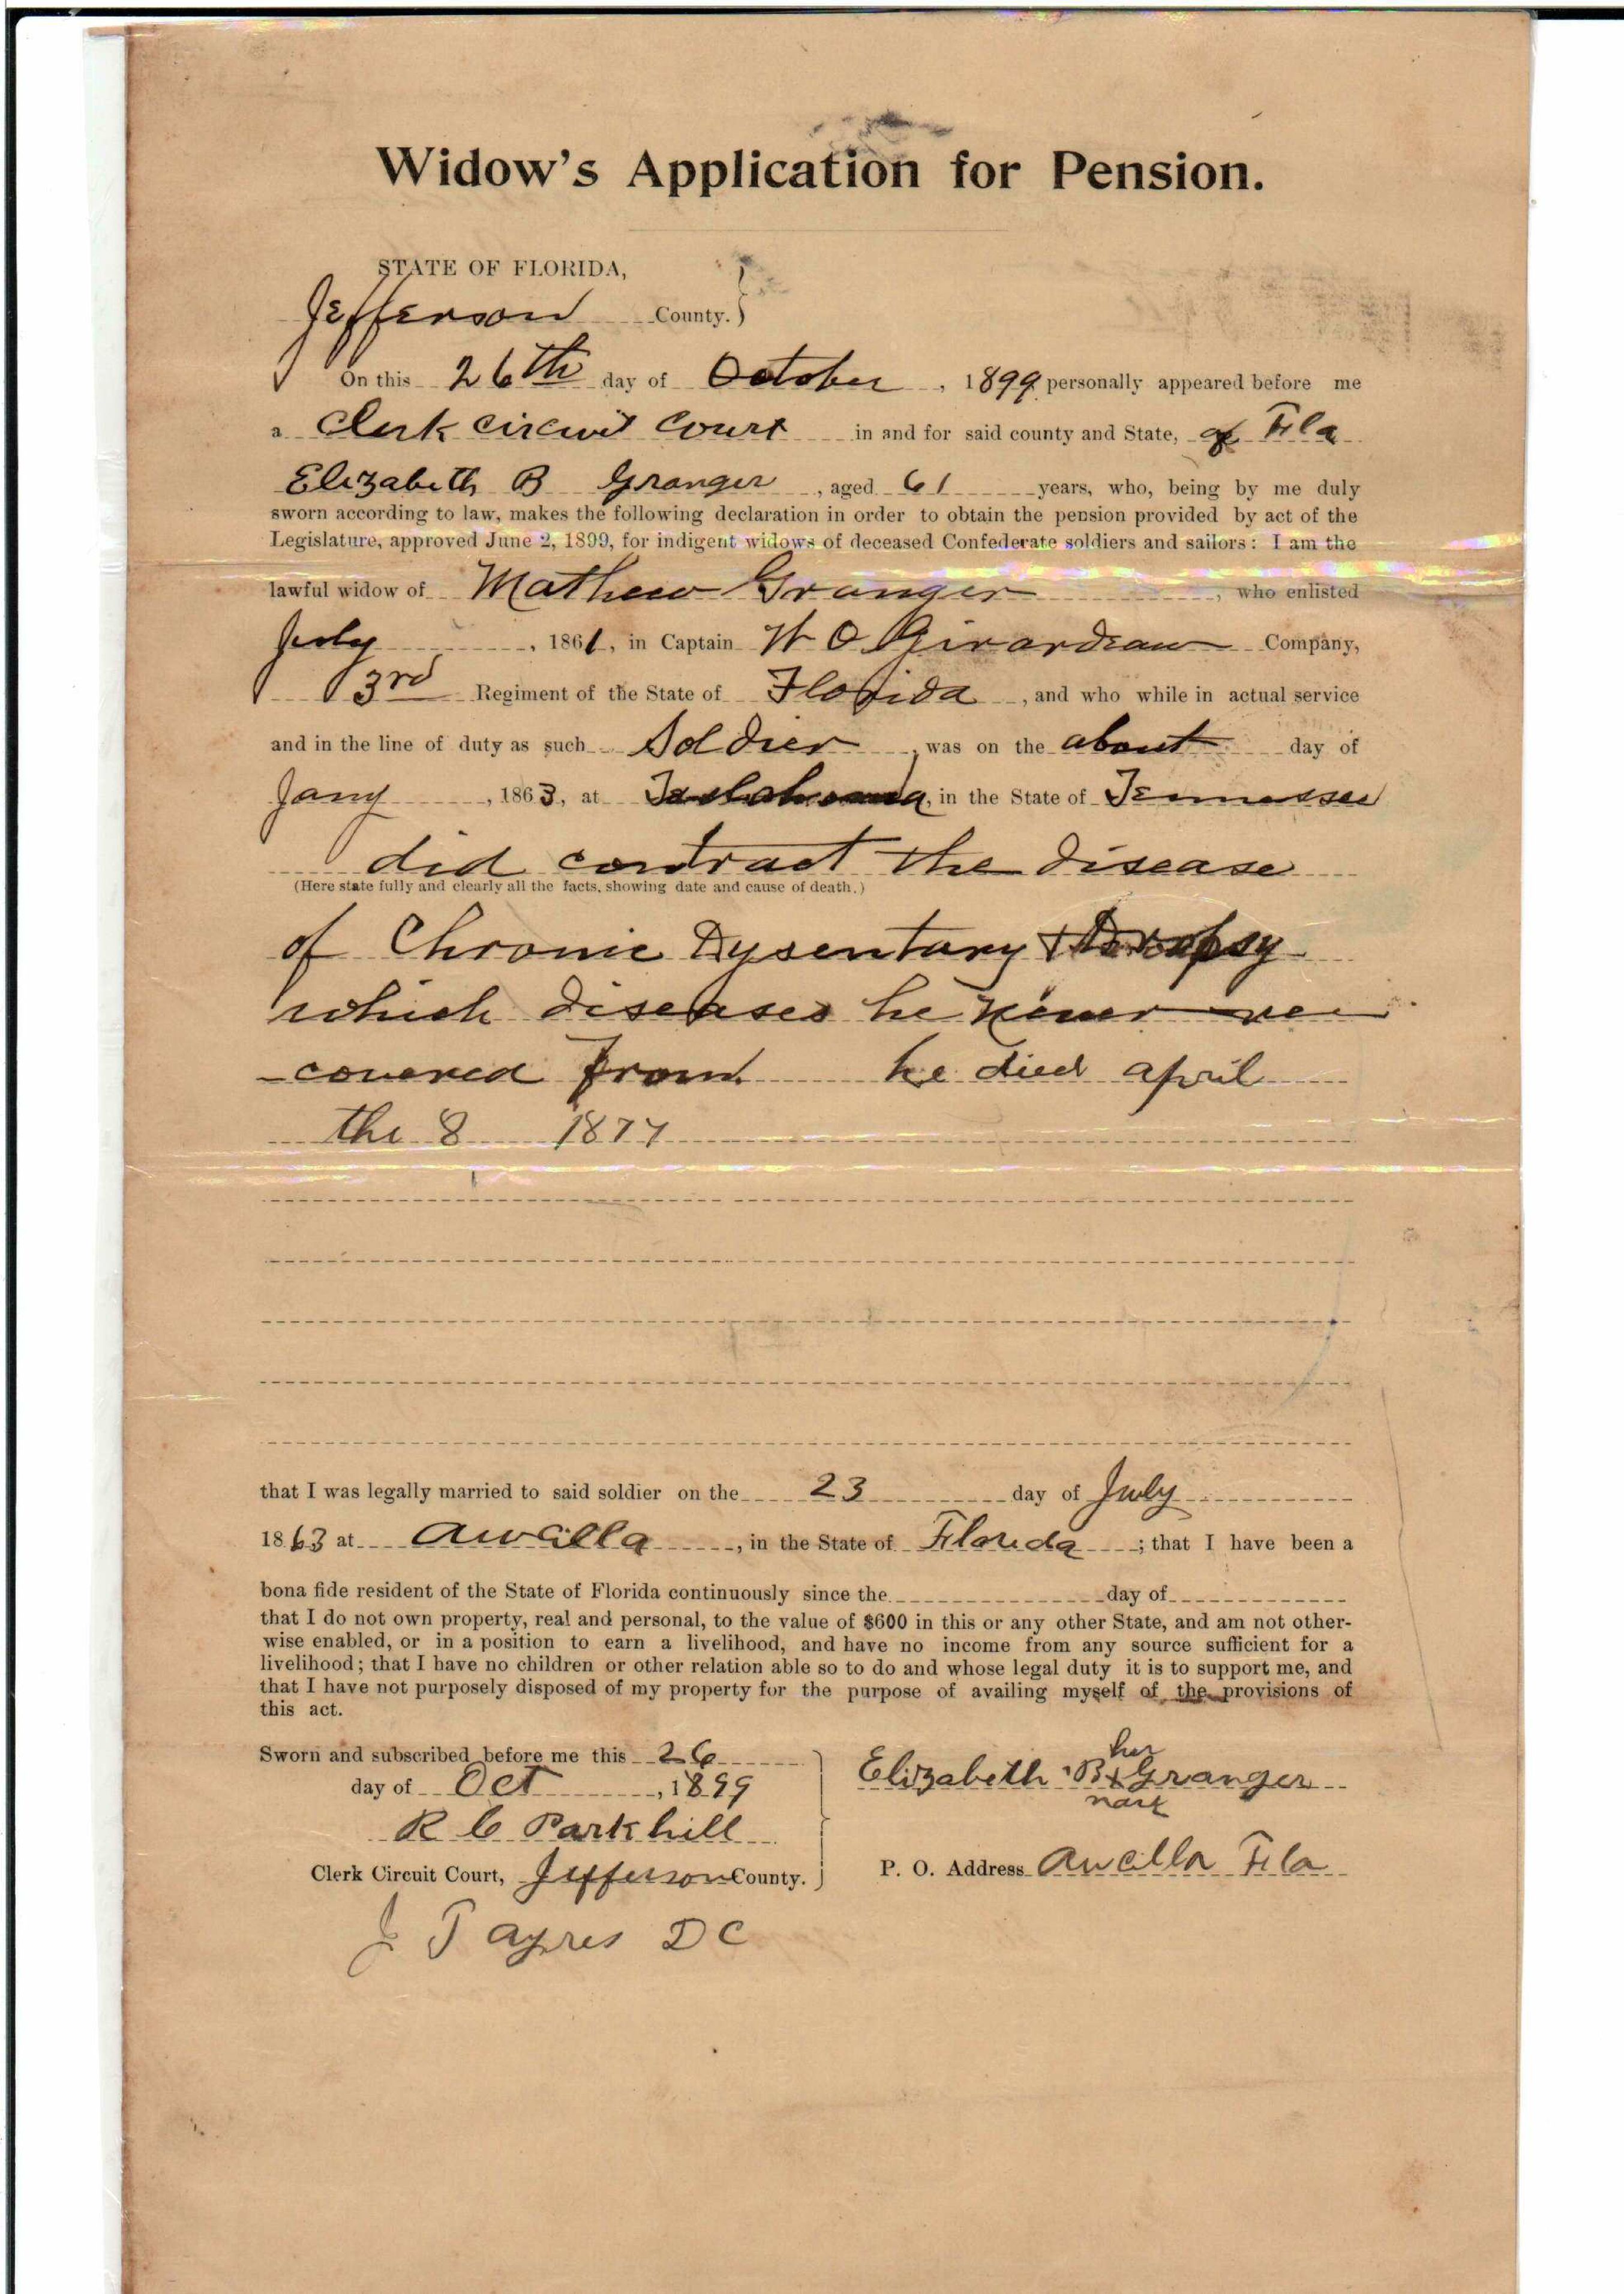 Widow's Application for Pension.
STATE OF FLORIDA,
Jefferson County. }
On this 26th day of October, 1899 personally appeared before me
a Clerk circuit Court in and for said county and State, of Fla
Elizabeth B Granger, aged 61 years, who, being by me duly
sworn according to law, makes the following declaration in order to obtain the pension provided by act of the
Legislature, approved June 2, 1899, for indigent widows of deceased Confederate soldiers and sailors: I am the
lawful widow of Mathew Granger, who enlisted
July, 1861, in Captain W O Girardeau Company,
3rd Regiment of the State of Florida, and who while in actual service
and in the line of duty as such Soldier, was on the about day of
Jany, 1863, at in the State of Tennessee
did contract the disease
(Here state fully and clearly all the facts, showing date and cause of death.)
of Chronic Dysentary & Dropsy
which diseases he never re
-covered from. he died april
the 8 1877
that I was legally married to said soldier on the 23 day of July
1863 at Aucilla, in the State of Florida; that I have been a
bona fide resident of the State of Florida continuously since the day of
that I do not own property, real and personal, to the value of $600 in this or any other State, and am not other-
wise enabled, or in a position to earn a livelihood, and have no income from any source sufficient for a
livelihood; that I have no children or other relation able so to do and whose legal duty it is to support me, and
that I have not purposely disposed of my property for the purpose of availing myself of the provisions of
this act.
Sworn and subscribed before me this 26
day of Oct, 1899
R C Parkhill
Clerk Circuit Court, Jefferson County. }
J T Ayres DC
her
Elizabeth B x Granger
mark
P. O. Address Aucilla Fla